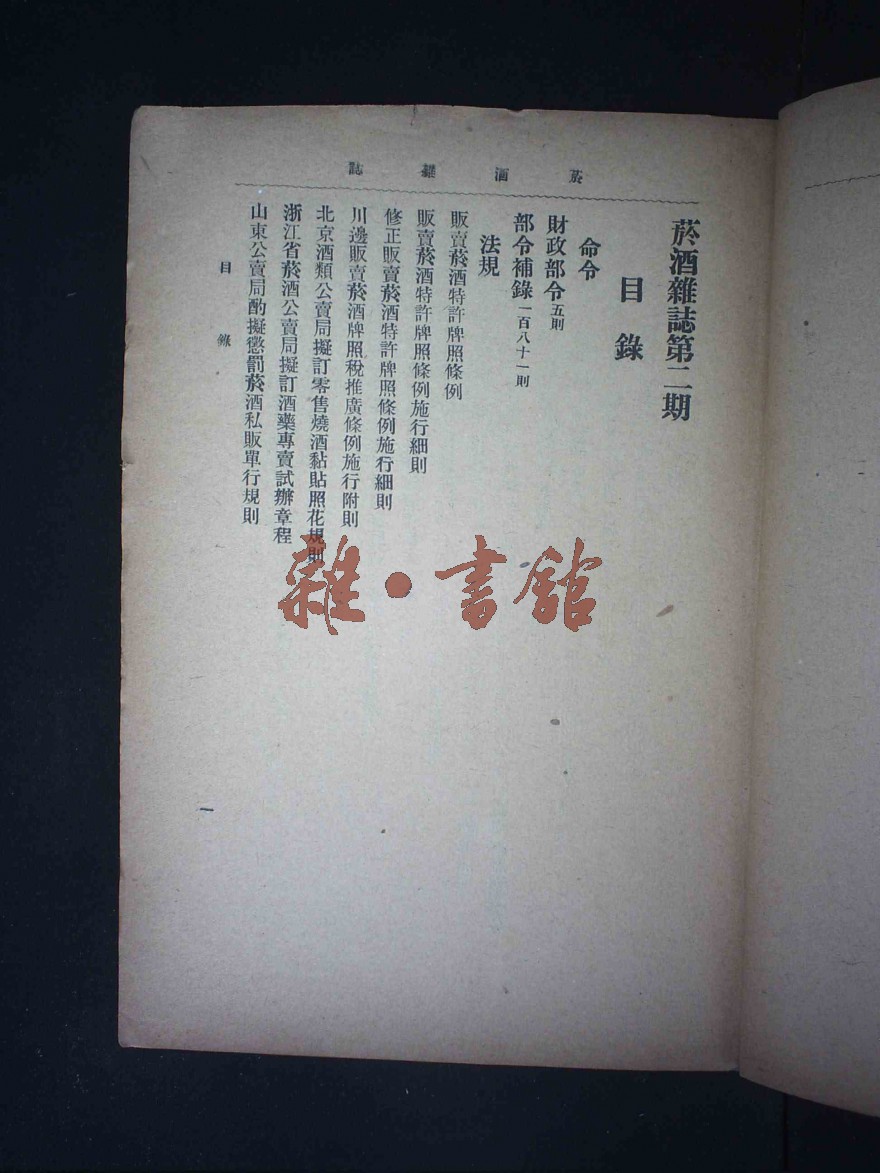 菸酒雜誌
菸酒雜誌第二期
目錄
命令
財政部令五則
部令補錄一百八十一則
法規
販賣菸酒特許牌照條例
販賣菸酒特許牌照條例施行細則
修正販賣菸酒特許牌照條例施行細則
川邊販賣菸酒牌照稅推廣條例施行附則
北京酒類公賣局擬訂零售燒酒黏貼照花規則
浙江省菸酒公賣局擬訂酒藥專賣試辦章程
山東公賣局酌擬懲罰菸酒私販單行規則
目錄
一
雜·書館